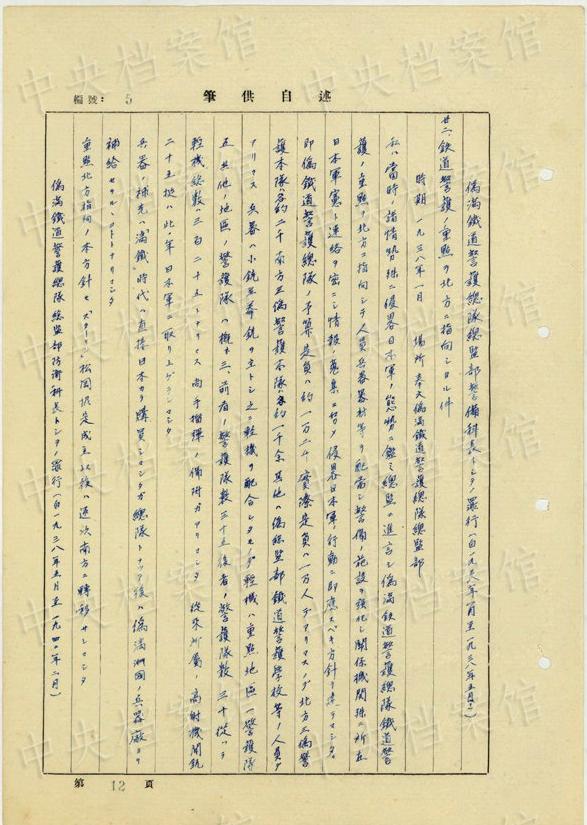 編號: 5
筆供自述
偽滿鐵道警護總隊總監部警備科長トシテノ罪行(自一九三八年一月至一九三八年五月)
廿二、鉄道警護ノ重點ヲ北方ニ指向シタル件
時期 一九三八年一月 場所 奉天偽滿鐵道警護總隊總監部
私ハ當時ノ諸情勢殊ニ侵畧日本軍ノ態勢ニ鑑ミ總監ニ進言シ偽滿鉄道警護總隊鐵道警
護ノ重點ヲ北方ニ指向シテ人員兵器器材等ヲ配當シ警備ノ施設ヲ強化シ關係機関殊ニ所在
日本軍憲ト連絡ヲ密ニシ情報ノ蒐集ニ努メ侵畧日本軍ノ行動ニ即應スベキ方針ヲ
即偽鐵道警護總隊ノ予算定員ハ約一万二千 實際定員ハ約一万人デアリマスガ北方三偽警
護本隊ハ各約二千 南方三偽警護本隊ハ各約一千余 其他ハ偽總監部鐵道警護学校等ノ人員デ
アリマス 兵器ハ小銃並拳銃ヲ主トシ之ニ輕機ヲ配合シタモノデ輕機ハ重點地區ハ一警護隊
五 其他ノ地區ノ警護隊ハ概ネ三、前者ノ警護隊数三十五後者ノ警護隊数三十従ハテ
輕機總数ハ三百二十五トナリマス 尚手榴弾ノ備附ガアリマシタ 從来所屬ノ高射機関銃
二十五挺ハ此ノ年日本軍ニ取リ上ゲラレマシタ
兵器ノ補充ハ「満鐵」時代ハ直接日本カラ購買シマシタガ總隊トナッタ後ハ偽滿洲國ノ兵器廠ヨリ
補給セラルルコトトナリマシタ
重點北方指向ノ本方針モ「スターリン」松岡協定成立以後ハ逐次南方ニ轉移サレマシタ
偽滿鐵道警護總隊總監部防衛科長トシテノ罪行(自一九三八年五月至一九四〇年二月)
第 12 頁
中央档案馆